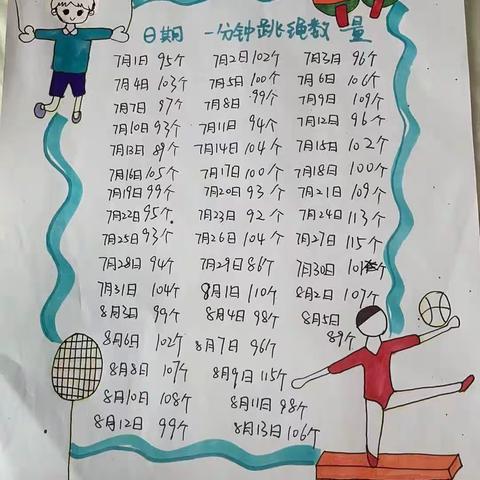 日期 一分钟跳绳数量
7月1日 95个 7月2日 102个 7月3日 96个
7月4日 103个 7月5日 100个 7月6日 106个
7月7日 87个 7月8日 99个 7月9日 109个
7月10日 93个 7月11日 94个 7月12日 96个
7月13日 89个 7月14日 104个 7月15日 102个
7月16日 105个 7月17日 100个 7月18日 100个
7月19日 99个 7月20日 93个 7月21日 109个
7月22日 95个 7月23日 92个 7月24日 113个
7月25日 93个 7月26日 104个 7月27日 115个
7月28日 94个 7月29日 86个 7月30日
7月31日 104个 8月1日 110个 8月2日 107个
8月3日 99个 8月4日 98个 8月5日 89个
8月6日 102个 8月7日 96个
8月8日 107个 8月9日 115个
8月10日 108个 8月11日 98个
8月12日 99个 8月13日 106个